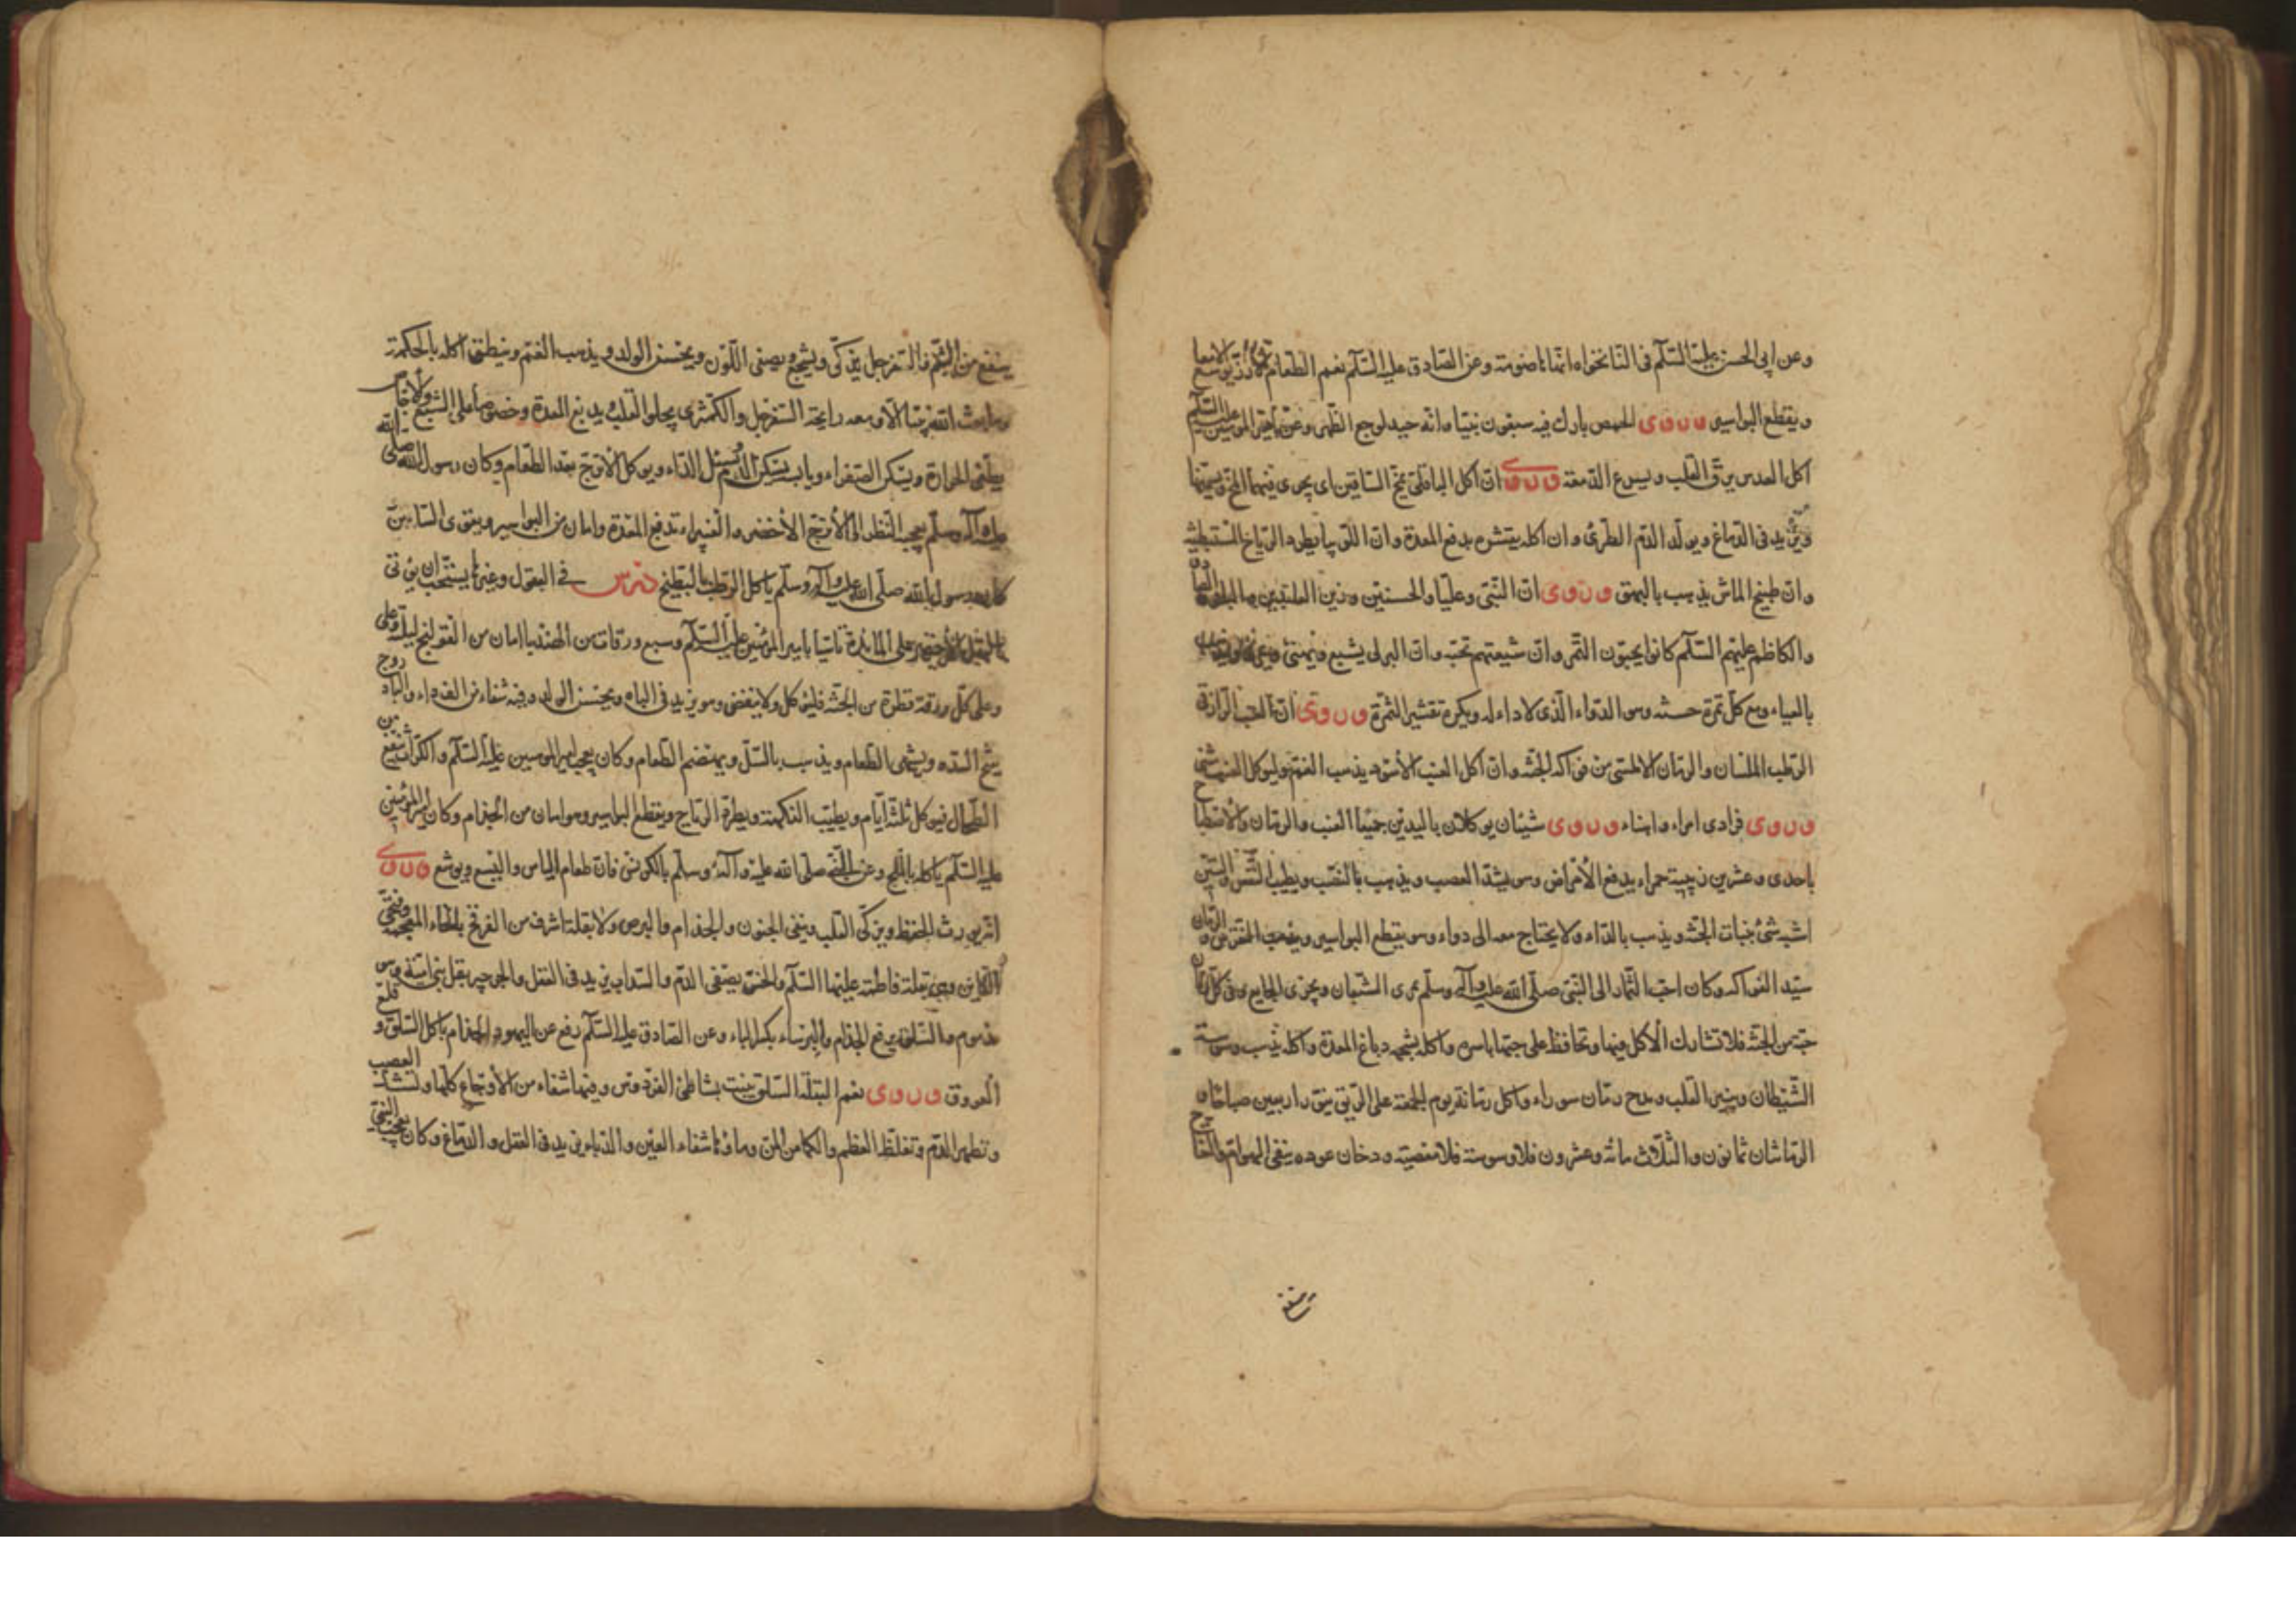 وعن ابي الحسن عليه السّلم في النّانخواه انّها هاضومة وعن الصّادق عليه السّلم نعم الطّعام الارز يوسّع الامعا
ويقطع البواسير وروى الحمص بارك فيه سبعون نبيّا وانّه جيد لوجع الظّهر وعن امير المؤمنين عليه السّلم
اكل العدس يرقّ القلب ويسرع الدّمعة وروى انّ اكل الباقلى يمخّ السّاقين اى يجرى فيهما المخّ ويسمنها
ويزيد في الدّماغ ويولّد الدّم الطّرىّ وان اكله بقشره يدفع المعدة وانّ اللّوبيا يطرد الرّياح المستبطنة
وان طبيخ الماش يذهب بالبهق وروى انّ النّبى وعليّا والحسنين وزين العابدين والباقر والصّادق
والكاظم عليهم السّلم كانوا يحبّون التّمر وانّ شيعتهم تحبّه وانّ البرنى يشبع ويهنئ ويمرئ ويذهب
بالعياء ومع كلّ تمرة حسنة وهو الدّواء الّذى لا داء له ويكره تقشير التّمرة وروى انّ العنب الرّازقى
الرّطب المشان والرّمان الاملسى من فواكه الجنّة وان اكل العنب الأسود يذهب الغمّ وليؤكل العنب مثنى
وروى فرادى امراء واهناء وروى شيئان يوكلان باليدين جميعا العنب والرّمان والاصطباح
باحدى وعشرين زبيبة حمراء يدفع الأمراض وهو يشدّ العصب ويذهب بالنّصب ويطيب النّفس والتّين
اشبه شئ بنبات الجنّة ويذهب بالدّاء ولا يحتاج معه الى دواء وهو يقطع البواسير ويذهب النقرس والرمّان
سيّد الفواكه وكان احبّ الثّمار الى النّبى صلّى الله عليه وآله وسلّم يمرى الشّبعان ويجزى الجايع وفي كلّ رمّان
حبّة من الجنّة فلا تشارك الأكل فيها وتحافظ على حبّها باسره واكله بشحمه دباغ المعدة واكله يذهب وسوسة
الشّيطان وينير القلب ومدح رمّان سوراء واكل رمّانة يوم الجمعة على الرّيق ينوّر اربعين صباحا و
الرّمانتان ثمانون والثّلاث مائة وعشرون فلا وسوسة فلا معصية ودخان عوده ينفى الهوام والتّفاح
ينفع
ينفع من السّم والسّفرجل يذكّى ويشجّع ويصفى اللّون ويحسن الولد ويذهب الغمّ وينطق اكله بالحكمة
وما بعث الله نبيّا الّا ومعه رايحة السّفرجل والكمّثرى يجلو القلب ويدبغ المعدة وخصوصا على الشّبع والاجّاص
يطفى الحرارة ويسكن الصّفراء ويابسه يسكن الدّم ويسيل الدّاء ويوكل الاترج بعد الطّعام وكان رسول الله صلّى الله
عليه وآله وسلّم يعجبه النّظر الى الأترج الأخضر والغبيراء تدبغ المعدة وامان من البواسير ويقوى السّاقين
وكان رسول الله صلّى الله عليه وآله وسلّم يأكل الرّطب بالبطّيخ درس في البقول وغيرها يستحبّ ان يؤتى
بالبقل الأخضر على المائدة تأسّيا بامير المؤمنين عليه السّلم وسبع ورقات من الهندبا امان من القولنج ليلته وعلى
وعلى كلّ ورقة قطرة من الجنّة فليؤكل ولا ينفض وهو يزيد في الباه ويحسن الولد وفيه شفاء من الف داء والباذروج
يفتح السّدد ويشهى الطّعام ويذهب بالسّل ويهضم الطّعام وكان يعجب امير المؤمنين عليه السّلم والكرّاث ينفع من
الطّحال فيؤكل ثلثة ايّام ويطيّب النّكهة ويطرد الرّياح ويقطع البواسير وهو امان من الجذام وكان امير المؤمنين
عليه السّلم يأكله بالملح وعن النّبى صلّى الله عليه وآله وسلّم بالكرفس فانّه طعام الياس واليسع ويوشع وروى
انّه يورث الحفظ ويذكّى القلب وينفى الجنون والجذام والبرص ولا بقلة اشرف من الفرفخ بالخاء المعجمة وفتح
الفائين وهى بقلة فاطمة عليها السّلم والخسّ يصفى الدّم والسّداب يزيد في العقل والجرجير بقل بنى اميّة وهو
مذموم والسّلق يدفع الجذام والبرساء بكسر الباء وعن الصّادق عليه السّلم رفع عن اليهود الجذام باكل السّلق وقلع
العروق وروى نعم البقلة السّلق ينبت بشاطئ الفردوس وفيها شفاء من الأوجاع كلّها وتشدّ العصب
وتطهر الدّم وتغلّظ العظم والكمأ من المنّ وماؤها شفاء العين والدّباء يزيد في العقل والدّماغ وكان يعجب النّبى